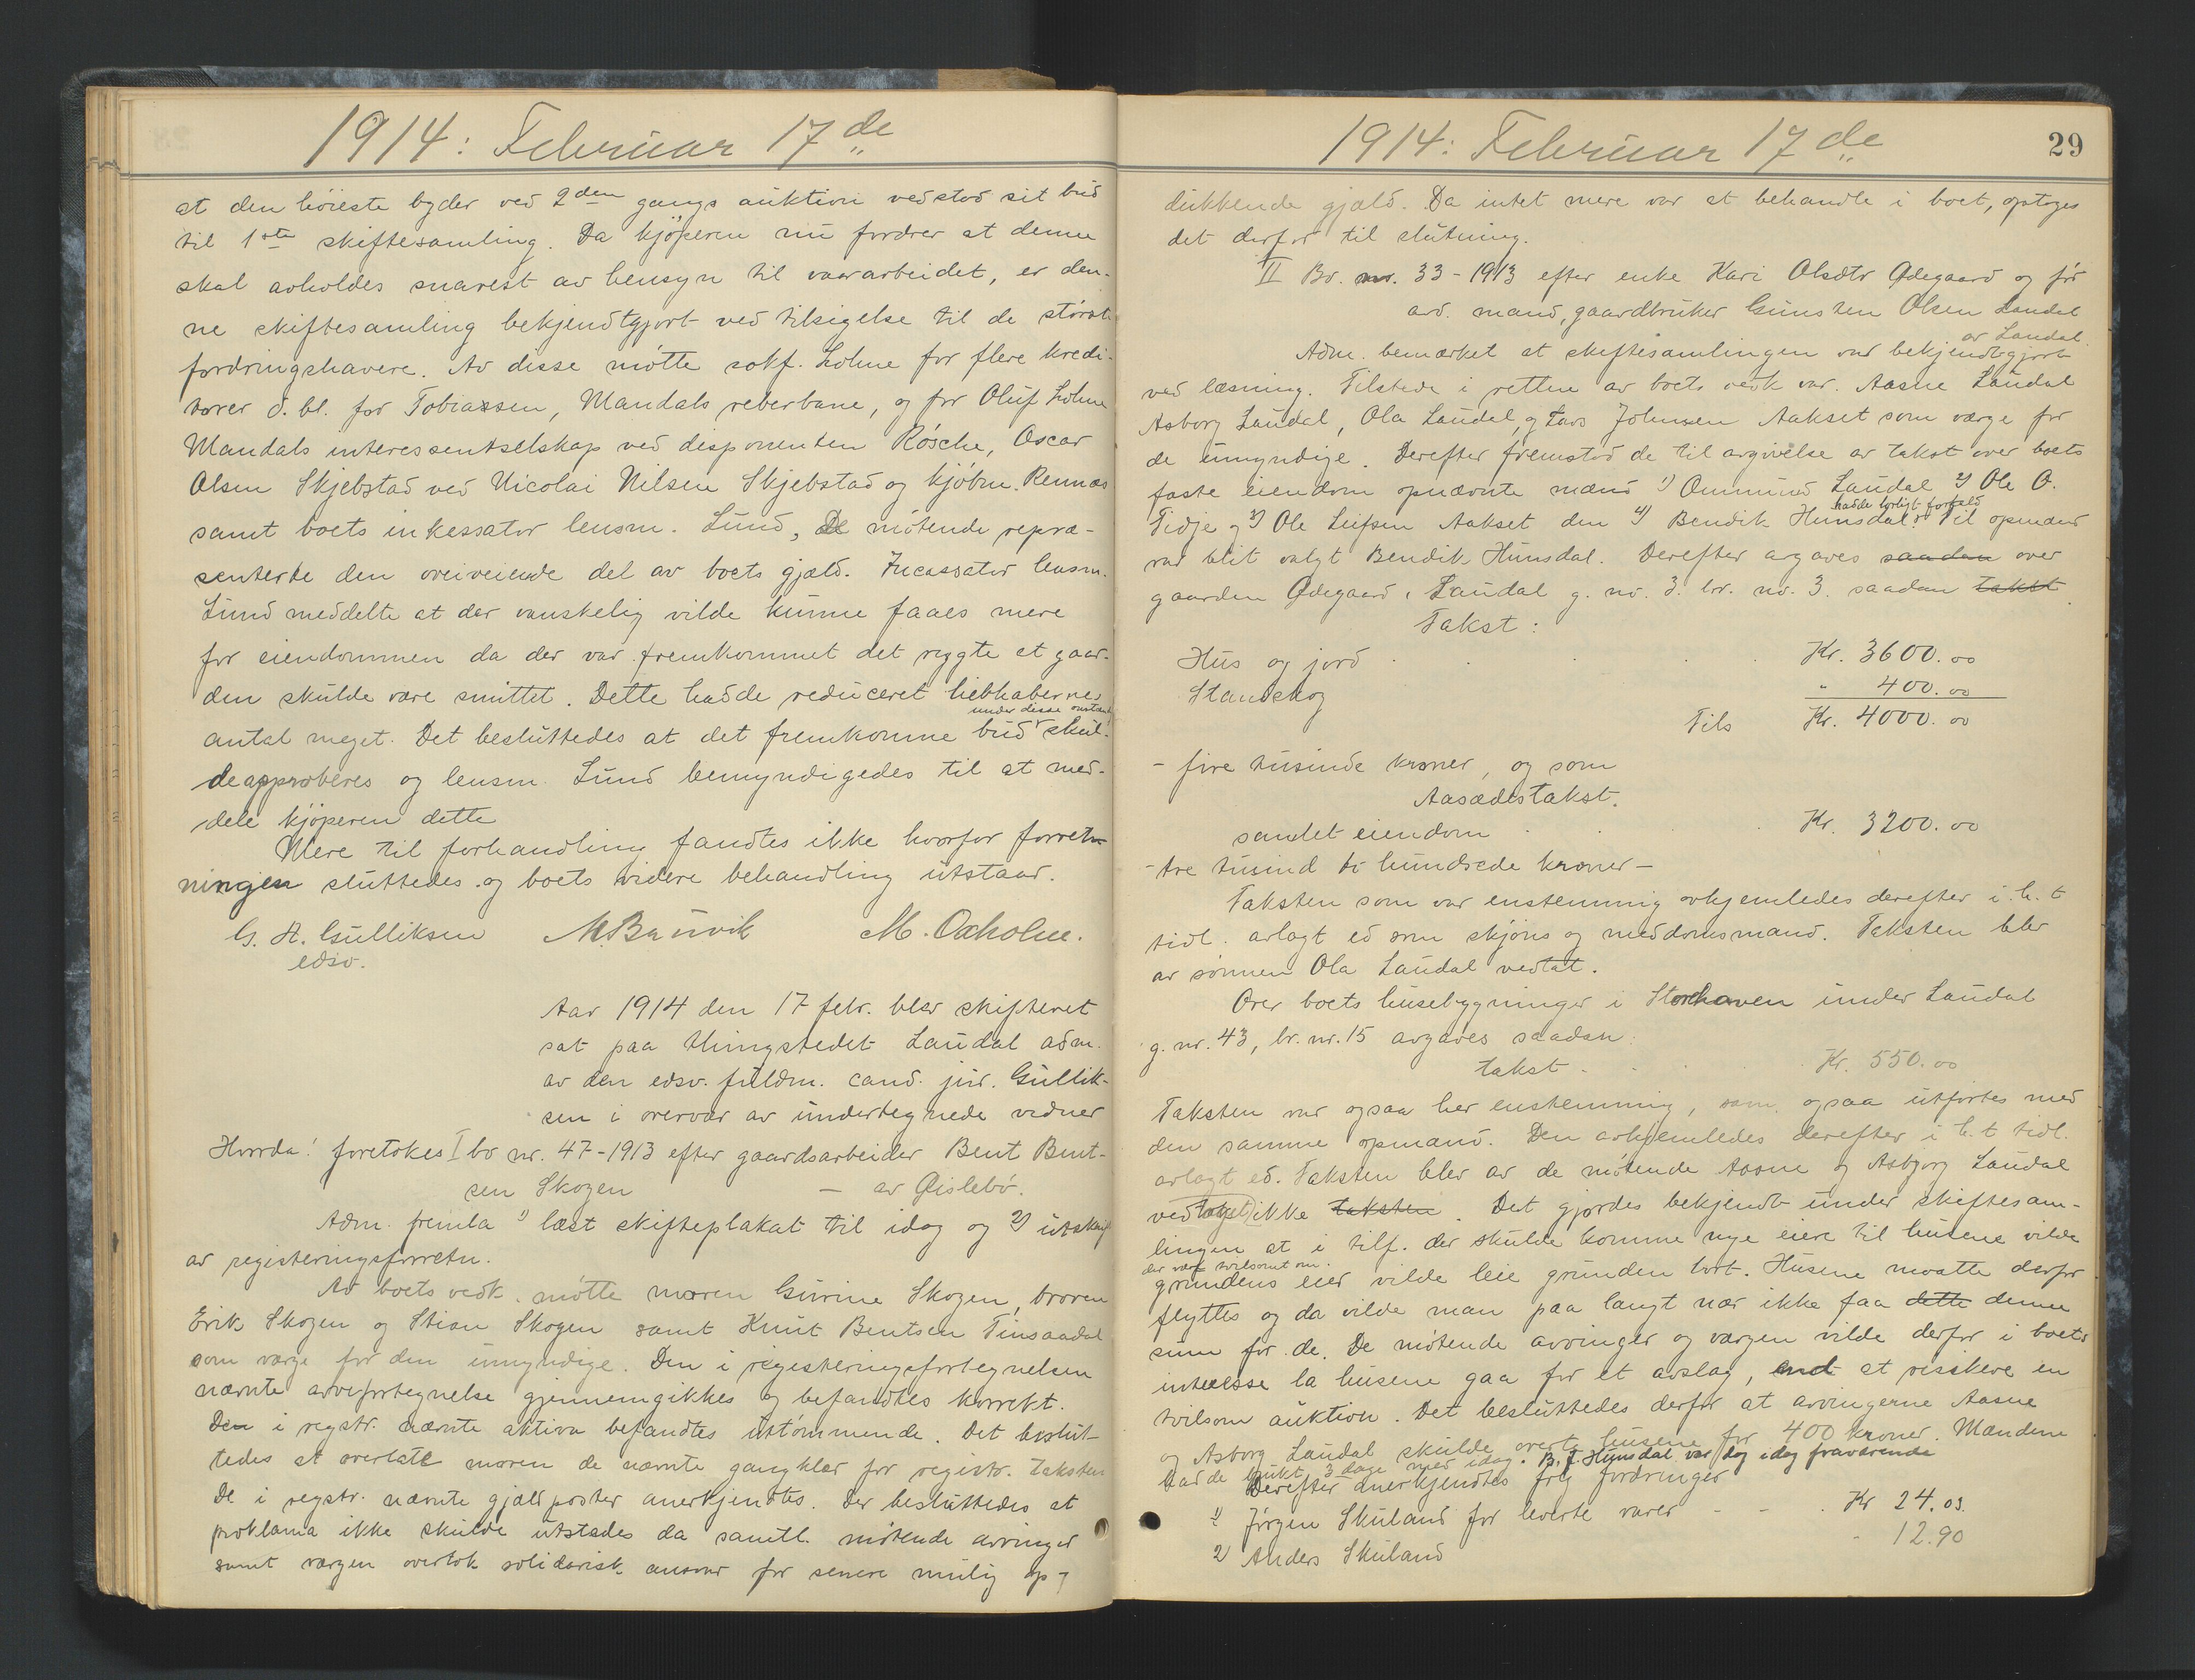 1914: Februar 17de
at den höieste byder ved 2den gangs auktion vedstod sit bud
til 1ste skiftesamling. Da kjöperen nu fordrer at denne
skal avholdes snarest av hensyn til vaararbeidet, er den-
ne skiftesamling bekjendtgjort ved tilsigelse til de störste
fordringshavere. Av disse mötte sakf. Lohne for flere kredi-
torer d. bl. for Tobiassen, Mandals reberbane, og for Oluf Lohne
Mandals interessentselskap ved disponenten Rösche, Oscar
Olsen Skjebstad ved Nicolai Nilsen Skjebstad og kjöbm. Rennæs
samt boets inkassator lensm. Lund, De mötende repræ-
senterte den oveiveiende del av boets gjæld. Incassator lensm.
Lund meddelte at der vanskelig vilde kunne faaes mere
for eiendommen da der var fremkommet det rygte at gaar-
den skulde være smittet. Dette hadde reduceret liebhabernes
under disse omstænd.
antal meget. Det besluttedes at det fremkomne bud skul-
de approberes og lensm. Lund bemyndigedes til at med-
dele kjöperen dette
Mere til forhandling fandtes ikke hvorfor forretn
ningen sluttedes og boets videre behandling utstaar.
G. A. Gulliksen M Bruvik M. Oxholm.
edsv.
Aar 1914 den 17 febr. blev skifteret
sat paa thingstedet Laudal adm.
av den edsv. fuldm. cand. jur. Gullik-
sen i overvær av undertegnede vidner
Hvorda! foretokes I bo nr. 47-1913 efter gaardsarbeider Bent Bent-
sen Skogen — av Øislebö.
Adm. fremla 1) læst skifteplakat til idag og 2) utskrift
av registeringsforretn.
Av boets vedk. mötte moren Gurine Skogen, broren
Erik Skogen og Stian Skogen samt Knut Bentsen Finsaadal
som værge for den umyndige. Den i registeringsfortegnelsen
nævnte arvefortegnelse gjennemgikkes og befandtes korrekt.
Den i registr. nævnte aktiva befandtes uttömmende. Det beslut-
tedes at overlate moren de nævnte gangklær for registr. taksten
De i registr. nævnte gjældposter anerkjendtes. Der besluttedes at
proklama ikke skulde utstedes da samtl. mötende arvinger
samt værgen overtok solidarisk ansvar for senere mulig op-
1914: Februar 17de
29
dukkende gjæld. Da intet mere var at behandle i boet, optoges
det derfor til slutning.
II Bo. nr. 33-1913 efter enke Kari Olsdtr Ødegaard og för
avd. mand, gaardbruker Gunsten Olsen Laudal
av Laudal.
Adm. bemærket at skiftesamlingen var bekjendtgjort
ved læsning. Tilstede i retten av boets vedk var. Aasne Laudal
Asborg Laudal, Ola Laudal, og Lars Johnsen Aakset som værge for
de umyndige. Derefter fremstod de til avgivelse av takst over boets
faste eiendom opnævnte mænd 1) Ommund Laudal 2) Ole O.
hadde lovligt forfald
Tidje og 3) Ole Leifsen Aakset den 4) Bendik Hunsdal. Til opmænd
var blit valgt Bendik Hunsdal. Derefter avgaves saadan over
gaarden Ødegaard i Laudal g. no. 3. br. no. 3. saadan takst
Takst:
Hus og jord . . . . Kr. 3600.00
Standskog " 400.00
Tils Kr. 4000.00
- fire tusinde kroner, og som
Aasædestakst.
samlet eiendom . . . Kr. 3200.00
- tre tusind to hundrede kroner -
Taksten som var enstemmig avhjemledes derefter i h. t
tidl. avlagt ed som skjöns og meddomsmand. Taksten blev
av sönnen Ola Laudal vedtat.
Over boets husebygninger i Storehaven under Laudal
g. nr. 43, br. nr. 15 avgaves saadan:
takst . . . Kr. 550.00
Taksten var ogsaa her enstemmig, som ogsaa utförtes med
den samme opmand. Den avhjemledes derefter i h. t tidl.
avlagt ed. Taksten blev av de mötende Aasne og Asbjorg Laudal
vedtaget ikke taksten. Det gjordes bekjendt under skiftesam-
lingen at i tilf. der skulde komme nye eiere til husene vilde
der være tvilsomt om.
grundens eier vilde leie grunden bort. Husene maatte derfor
flyttes og da vilde man paa langt nær ikke faa dette denne
sum for de. De mötende arvinger og værgen vilde derfor i boets
interesse la husene gaa for et avslag, end at risskere en
tvilsom auktion. Det besluttedes derfor at arvingerne Aasne
og Asborg Laudal skulde overta husene for 400 kroner. Mændene
hadde brukt 3 dage med idag. B. J. Hunsdal var dog idag fraværende
Derefter anerkjendtes fölg fordringer
1) Jörgen Skuland for leverte varer - - . Kr 24.03.
2) Anders Skuland - 12.90